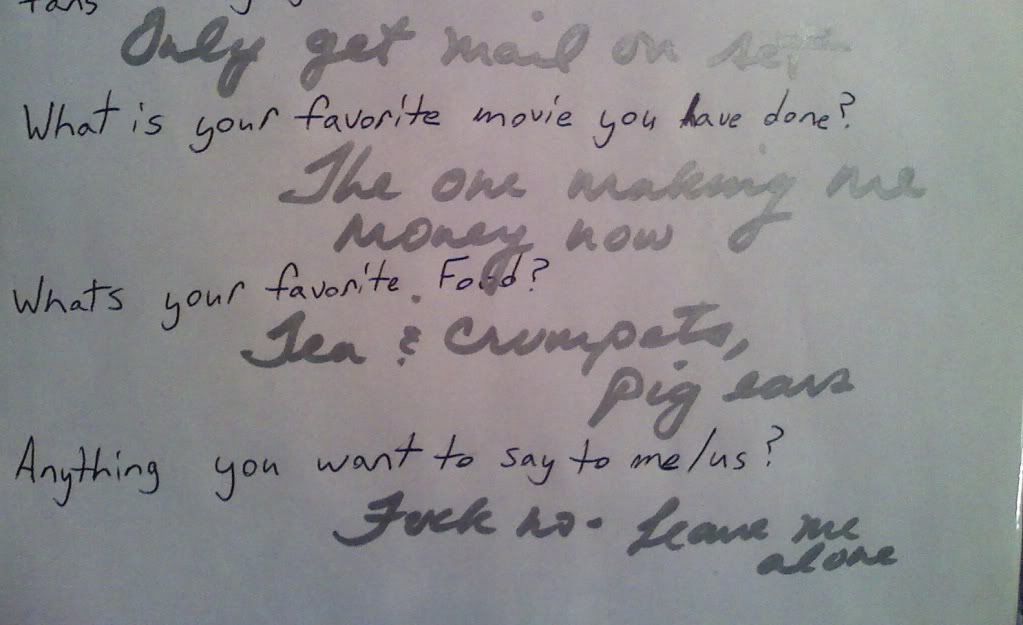 fans
Only get mail on set
What is your favorite movie you have done?
The one making me
money now
Whats your favorite Food?
Tea & Crumpets,
pig ears
Anything you want to say to me/us?
Fuck no. Leave me
alone